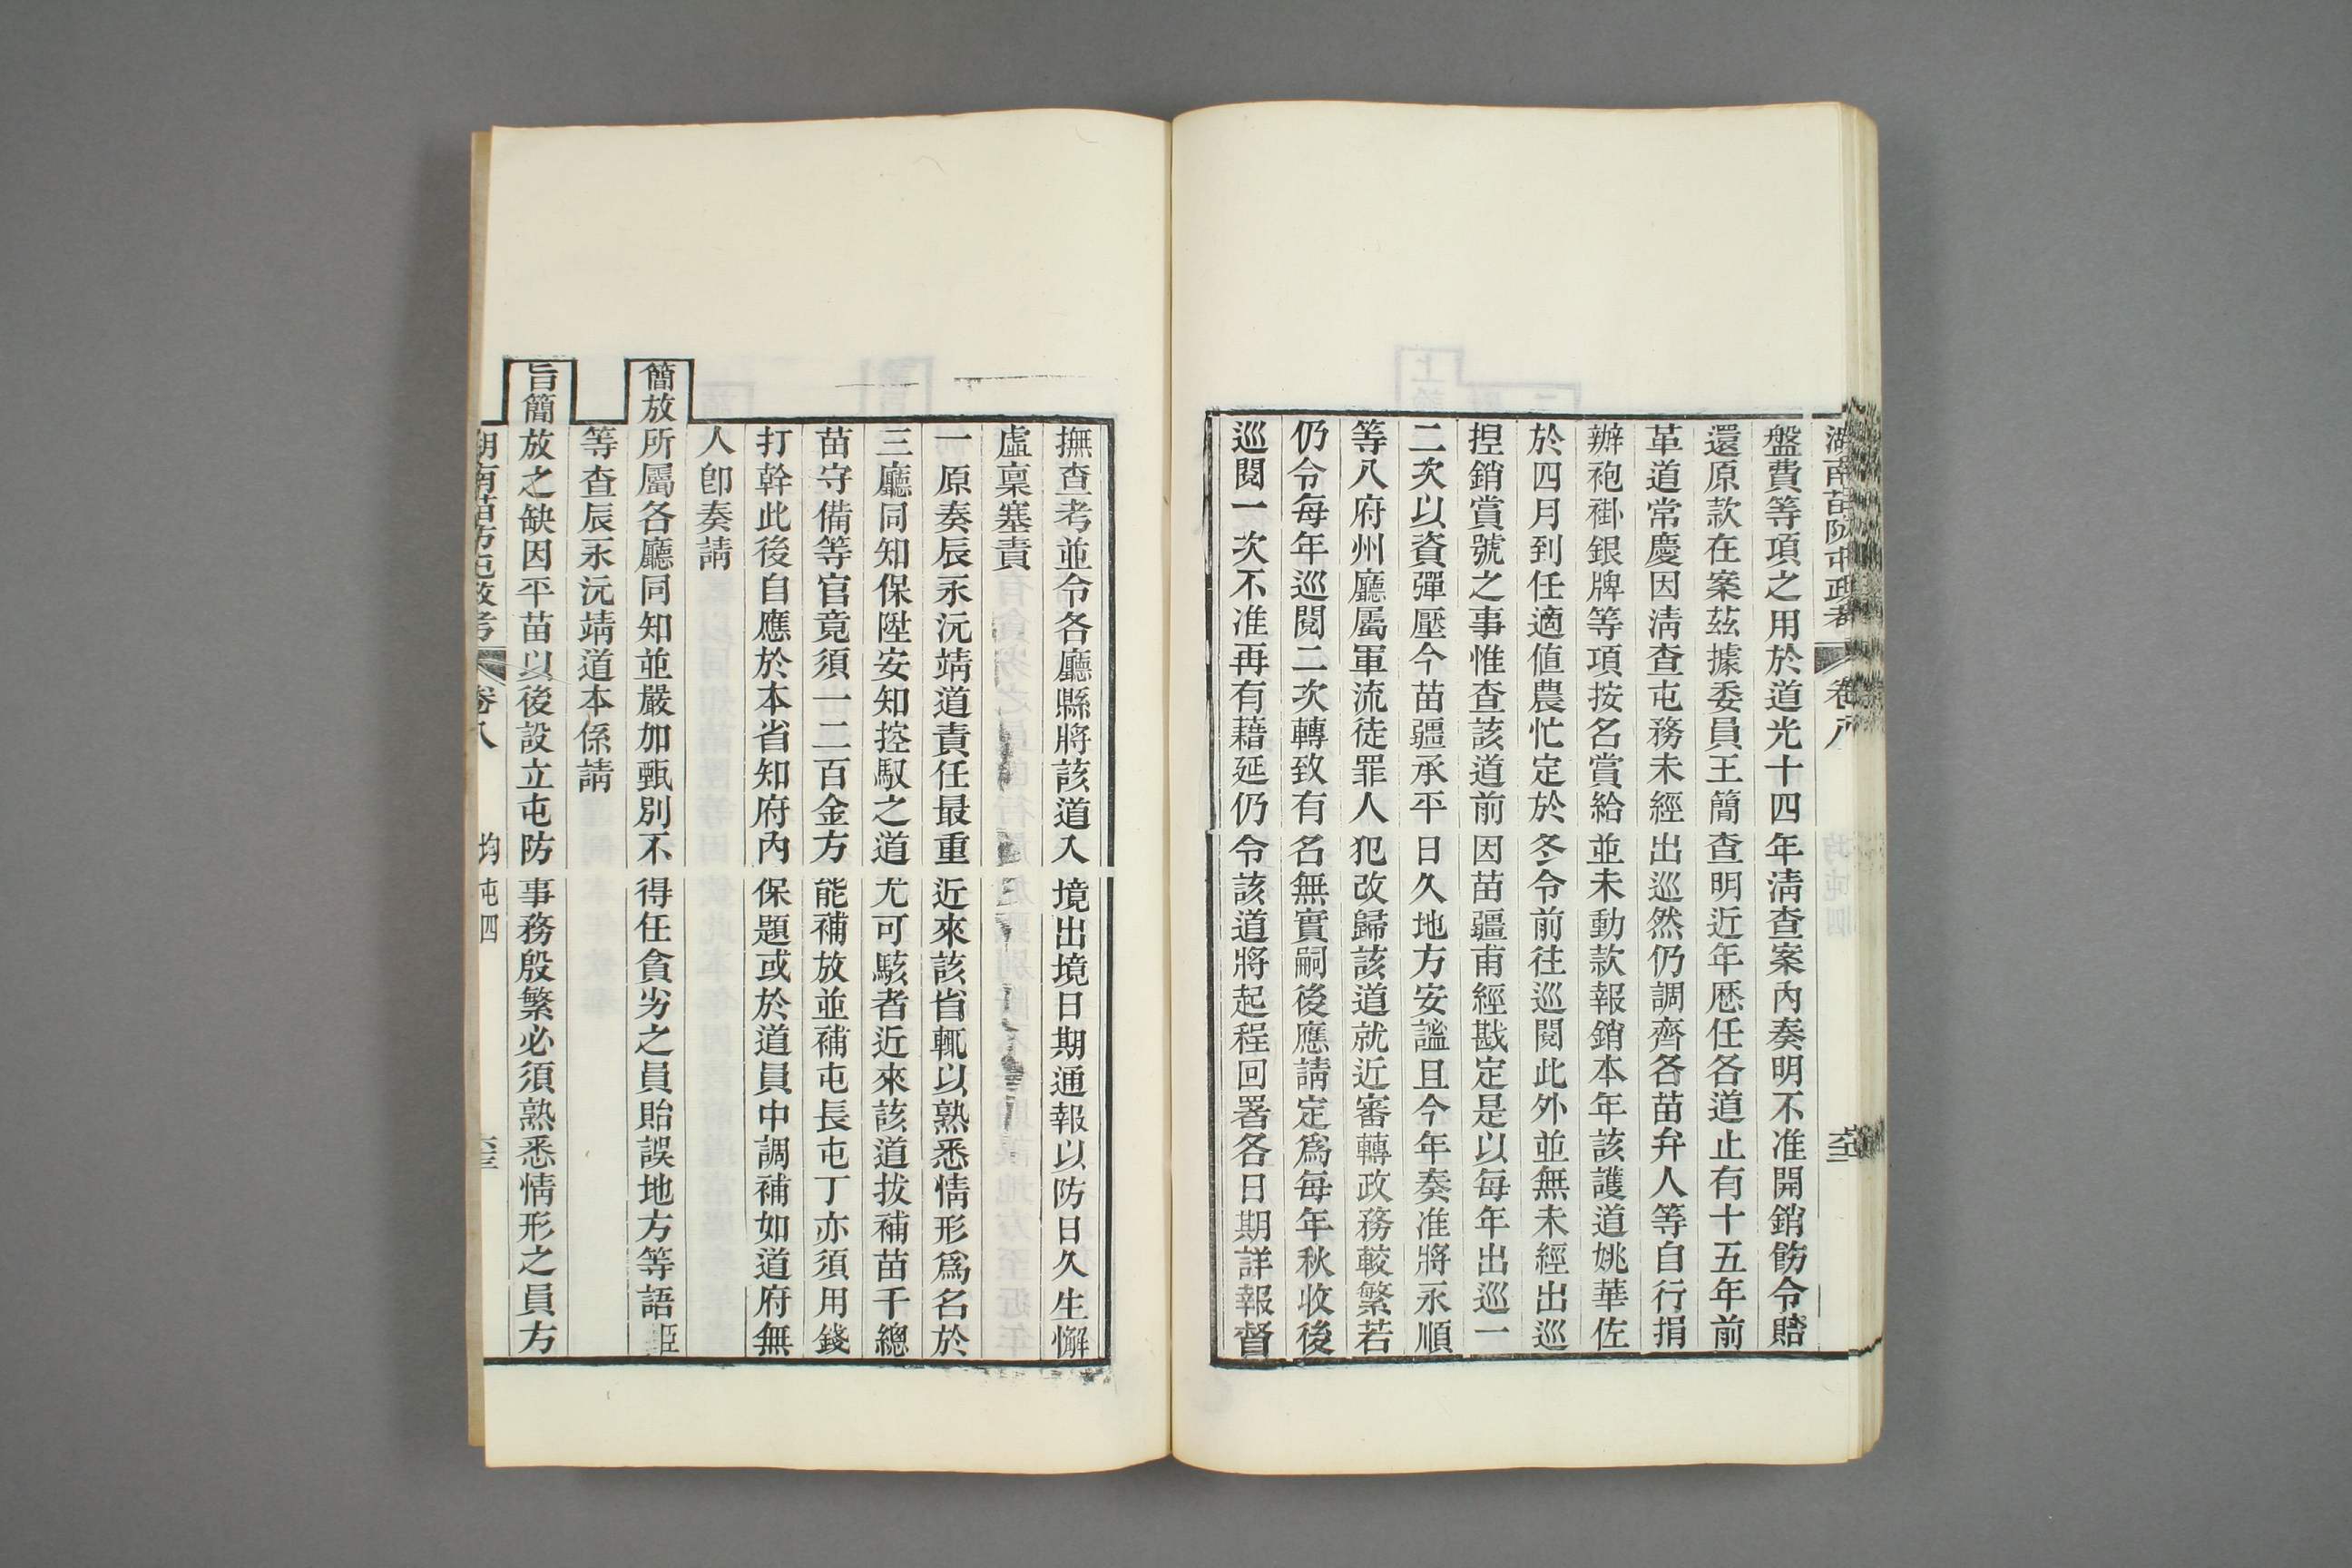 湖南苗防屯政考 卷八
盤費等項之用於道光十四年淸查案內奏明不准開銷飭令賠
還原款在案茲據委員王簡查明近年歷任各道止有十五年前
革道常慶因淸查屯務未經出巡然仍調齊各苗弁人等自行捐
辦袍褂銀牌等項按名賞給並未動款報銷本年該護道姚華佐
於四月到任適值農忙定於冬令前往巡閱此外並無未經出巡
揑銷賞號之事惟查該道前因苗疆甫經戡定是以每年出巡一
二次以資彈壓今苗疆承平日久地方安謐且今年奏准將永順
等八府州廳屬軍流徒罪人犯改歸該道就近審轉政務較繁若
仍令每年巡閱二次轉致有名無實嗣後應請定爲每年秋收後
巡閱一次不准再有藉延仍令該道將起程回署各日期詳報督
撫查考並令各廳縣將該道入境出境日期通報以防日久生懈
虛稟塞責
一原奏辰永沅靖道責任最重近來該省輒以熟悉情形爲名於
三廳同知保陞安知控馭之道尤可駭者近來該道拔補苗千總
苗守備等官竟須一二百金方能補放並補屯長屯丁亦須用錢
打幹此後自應於本省知府內保題或於道員中調補如道府無
人卽奏請
簡放所屬各廳同知並嚴加甄別不得任貪劣之員貽誤地方等語臣
等查辰永沅靖道本係請
旨簡放之缺因平苗以後設立屯防事務殷繁必須熟悉情形之員方
湖南苗防屯政考 卷八 均屯四